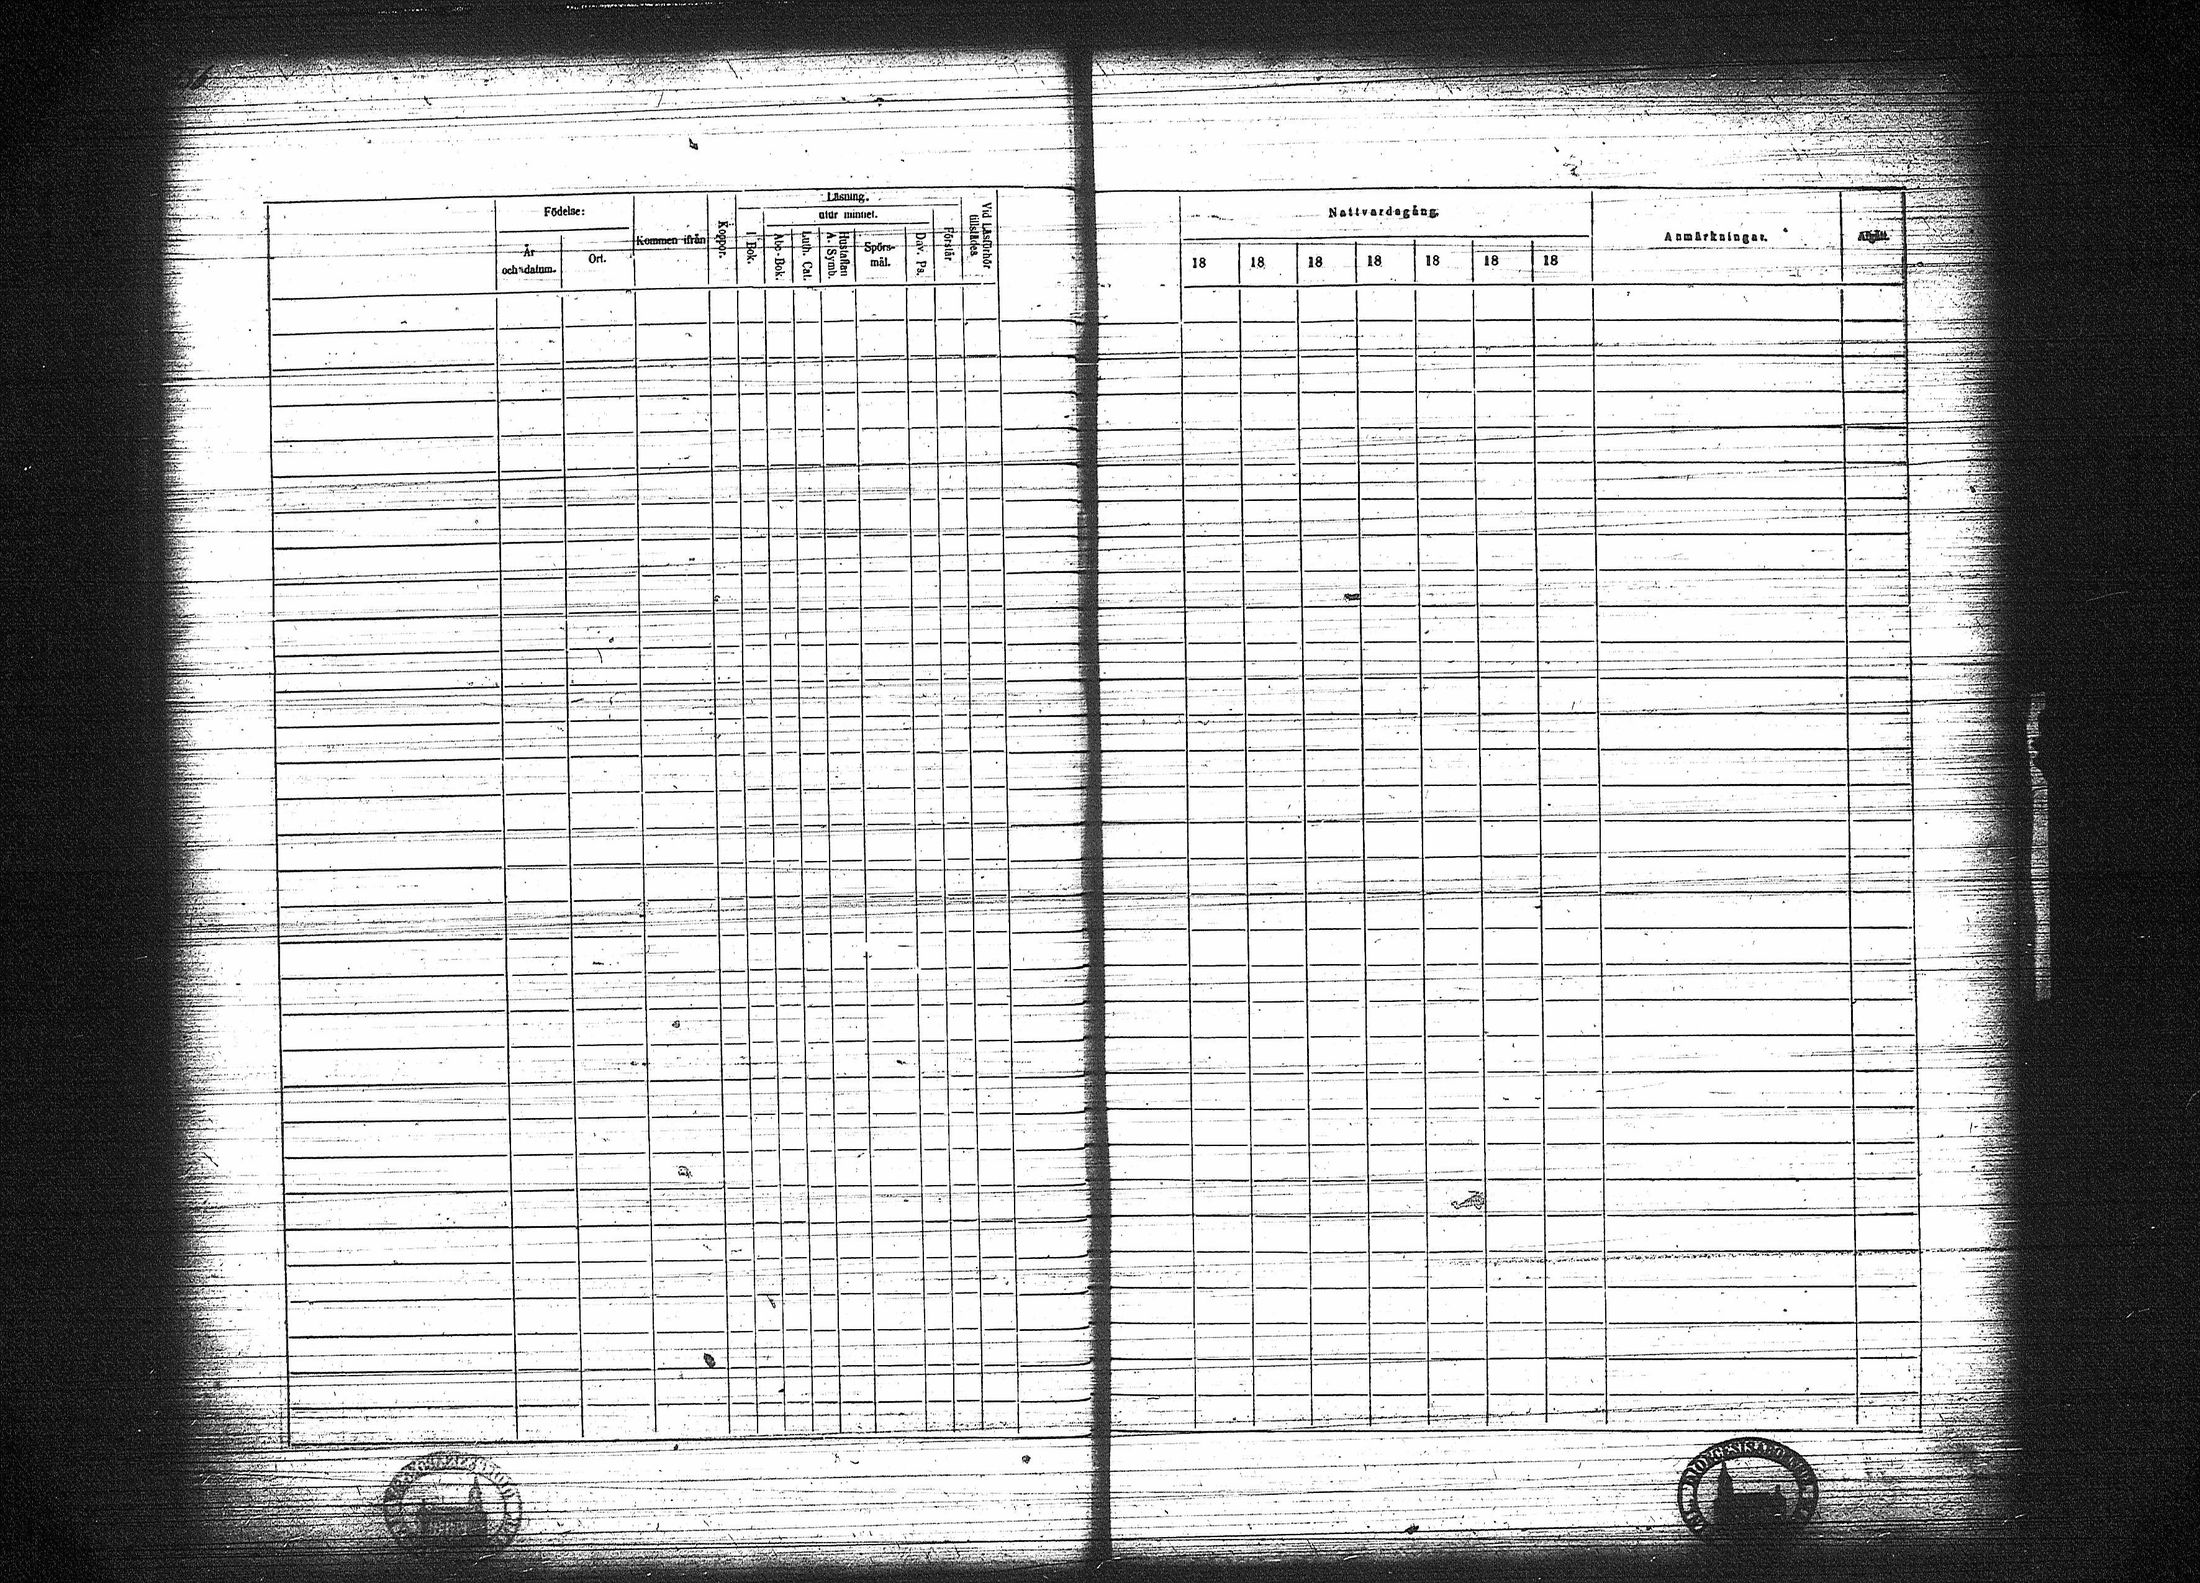 Födelse:
År
och datum.
Ort.
Kommen ifrån
Koppor.
Läsning.
I Bok.
utur minnet.
Abc-Bok.
Luth. Cat.
Hustaflan
A. Symb.
Spörs-
mål.
Dav. Ps.
Förstår
Vid Läsförhör
tillstädes
Nattvardsgång.
18 18 18 18 18 18 18
Anmärkningar.
Afgått.